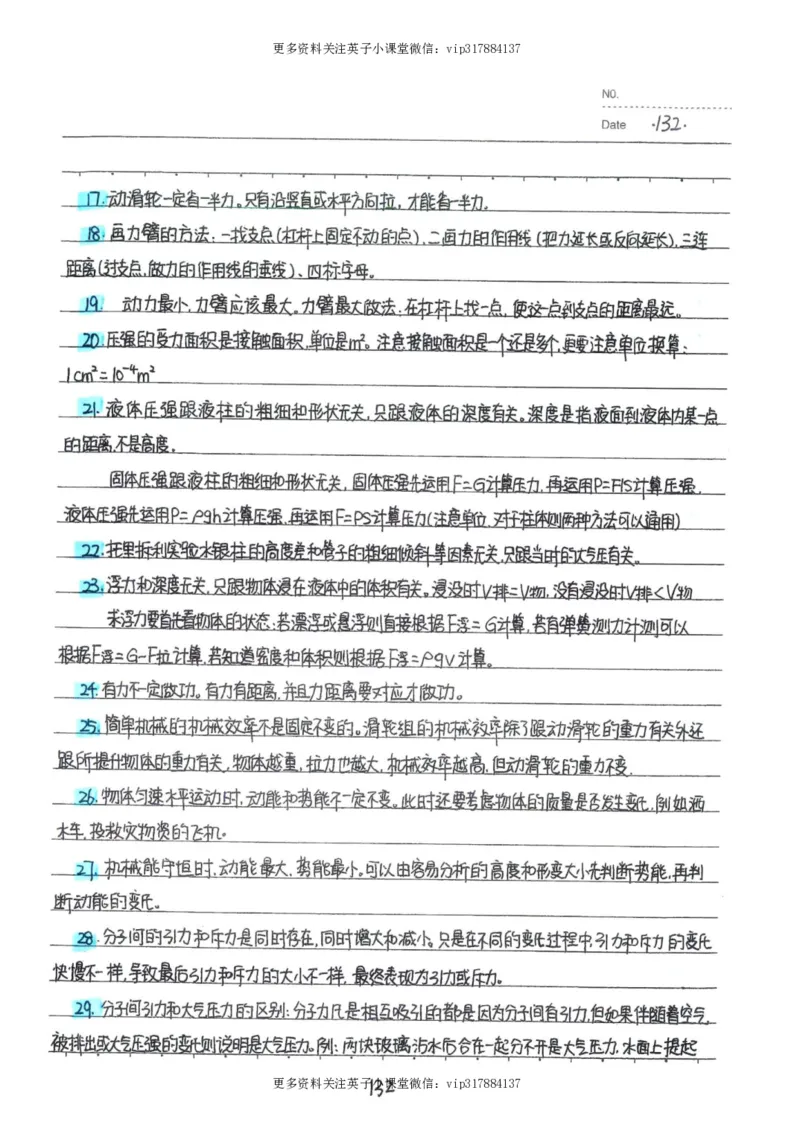 更多资料关注英子小课堂微信：vip317884137
NO.
Date ·132·
17.动滑轮一定省一半力。只有沿竖直或水平方向拉，才能省一半力.
18.画力臂的方法：一找支点(杠杆上固定不动的点)，二画力的作用线(把力延长或反向延长)，三连
距离(过支点,做力的作用线的垂线)、四标字母。
19. 动力最小,力臂应该最大。力臂最大做法:在杠杆上找一点，使这一点到支点的距离最远。
20.压强的受力面积是接触面积,单位是m²。注意接触面积是一个还是多个,更要注意单位换算、
1cm²=10⁻⁴m²
21.液体压强跟液柱的粗细和形状无关,只跟液体的深度有关。深度是指液面到液体内某一点
的距离,不是高度.
固体压强跟液柱的粗细和形状无关,固体压强先运用F=G计算压力,再运用P=F/S计算压强,
液体压强先运用P=ρgh计算压强,再运用F=PS计算压力(注意单位,对于柱体则两种方法可以通用)
22.托里拆利实验水银柱的高度差和管子的粗细倾斜等因素无关,只跟当时的大气压有关。
23.浮力和深度无关,只跟物体浸在液体中的体积有关。浸没时V排=V物,没有浸没时V排<V物
求浮力要首先看物体的状态:若漂浮或悬浮则直接根据F浮=G计算,若有弹簧测力计测可以
根据F浮=G-F拉计算,若知道密度和体积则根据F浮=ρgv计算。
24.有力不一定做功。有力有距离,并且力距离要对应才做功。
25.简单机械的机械效率不是固定不变的。滑轮组的机械效率除了跟动滑轮的重力有关外还
跟所提升物体的重力有关,物体越重,拉力也越大,机械效率越高,但动滑轮的重力不变.
26.物体匀速水平运动时,动能和势能不一定不变。此时还要考虑物体的质量是否发生变化,例如洒
水车,投救灾物资的飞机。
27.机械能守恒时,动能最大,势能最小。可以由容易分析的高度和形变大小先判断势能,再判
断动能的变化。
28.分子间的引力和斥力是同时存在,同时增大和减小。只是在不同的变化过程中引力和斥力的变化
快慢不一样,导致最后引力和斥力的大小不一样,最终表现为引力或斥力。
29.分子间引力和大气压力的区别:分子力凡是相互吸引的都是因为分子间有引力,但如果伴随着空气
被排出或大气压强的变化则说明是大气压力。例:两块玻璃沾水后合在一起分不开是大气压力,水面上提起
更多资料关注英子小课堂微信：vip317884137
132